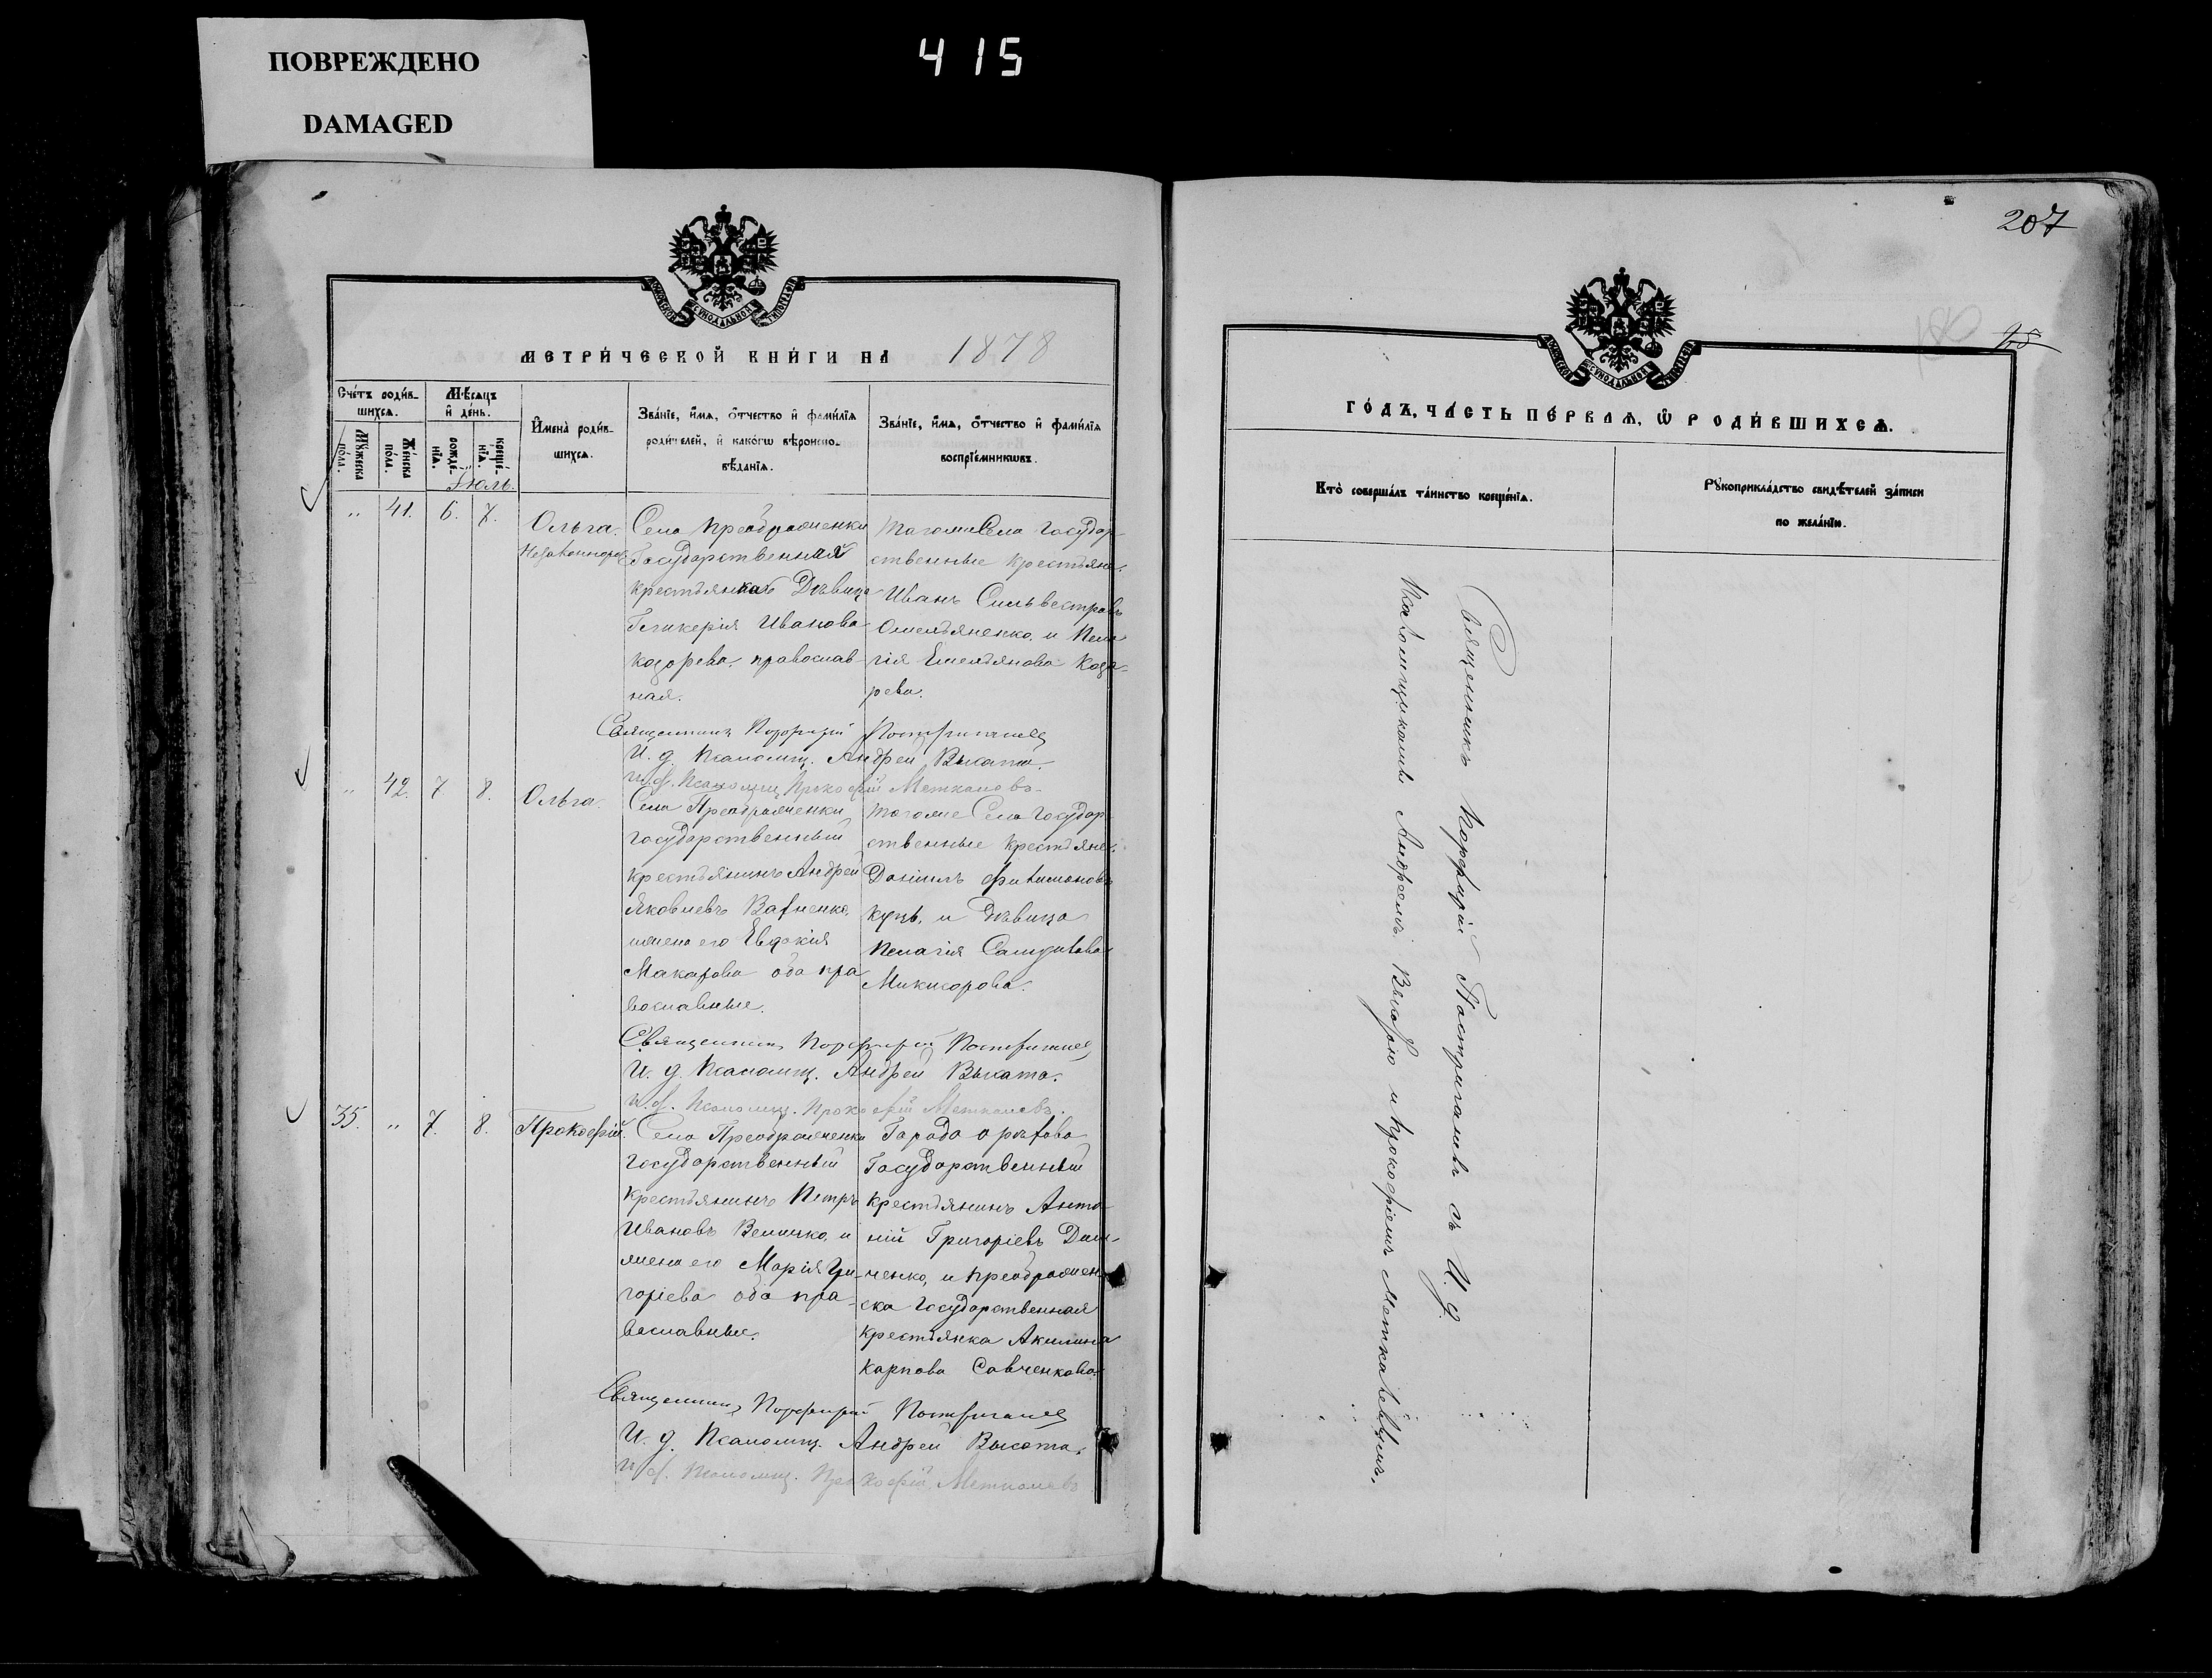 ПОВРЕЖДЕНО
DAMAGED
415
МЕТРИ́ЧЕСКОЙ КНИ́ГИ НА 1878
Сче́тъ роди́в-
шихсѧ.
Мѣ́сѧцъ
и҆ де́нь.
Мꙋ́жеска
по́ла.
Же́нска
по́ла.
рожде́-
нїѧ.
креще́-
нїѧ.
И҆мена̀ роди́в-
шихсѧ.
Зва́нїе, и҆́мѧ, ѻ҆́тчество и҆ фами́лїѧ
роди́телей, и҆ како́гѡ вѣроиспо-
вѣ́данїѧ.
Зва́нїе, и҆́мѧ, ѻ҆́тчество и҆ фами́лїѧ
воспрїе́мникѡвъ.
Іюль.
" 41. 6. 7.
Ольга
Незаконнорож
Села Преображенки
Государственная
крестьянка Дѣвица
Гликерія Иванова
Козорева, православ-
ная.
тогоже Села Государ-
ственные крестьяне.
Иванъ Сильвестровъ
Омельяненко, и Пела
гія Емельянова Коза-
рева.
Священникъ Порфирій Постригачевъ
И. д. Псаломщ. Андрей Высота.
и. д. Псаломщ. Прокофій Меткалевъ
" 42. 7 8.
Ольга.
Села Преображенки
государственный
крестьянинъ Андрей
Яковлевъ
жена его Евдокія
Макарова оба пра
вославные.
тогоже Села Государ
ственные крестьяне.
Даніилъ Филимоновъ
Куцъ, и Дѣвица
Пелагія
Священникъ Порфирій Постригачевъ
И. д. Псаломщ. Андрей Высота.
и. д. Псаломщ. Прокофій Меткалевъ.
35. " 7. 8.
Прокофій.
Села Преображенки
государственный
крестьянинъ Петръ
Ивановъ Величко, и
жена его Марія Гри-
горіева оба пра-
вославные.
Города Орѣхова
Государственный
крестьянинъ Анто-
ній Григоріевъ
ченко, и Преображен-
ска Государственная
крестьянка Акилина
Карпова Савченкова.
Священникъ Порфирій Постригачевъ
И. д. Псаломщ. Андрей Высота.
и. д. Псаломщ. Прокофій Меткалевъ
207
ГО́ДЪ, ЧА́СТЬ ПЕ́РВАѦ, Ѡ҆ РОДИ́ВШИХСѦ.
Кто̀ соверша́лъ та́инство креще́нїѧ.
Рꙋкоприкла́дство свидѣ́телей за́писи
по жела́нїю.
Священникъ Порфирій Постригачевъ съ И. д.
Псаломщиками Андреемъ Высотою и Прокофіемъ Меткалевымъ.